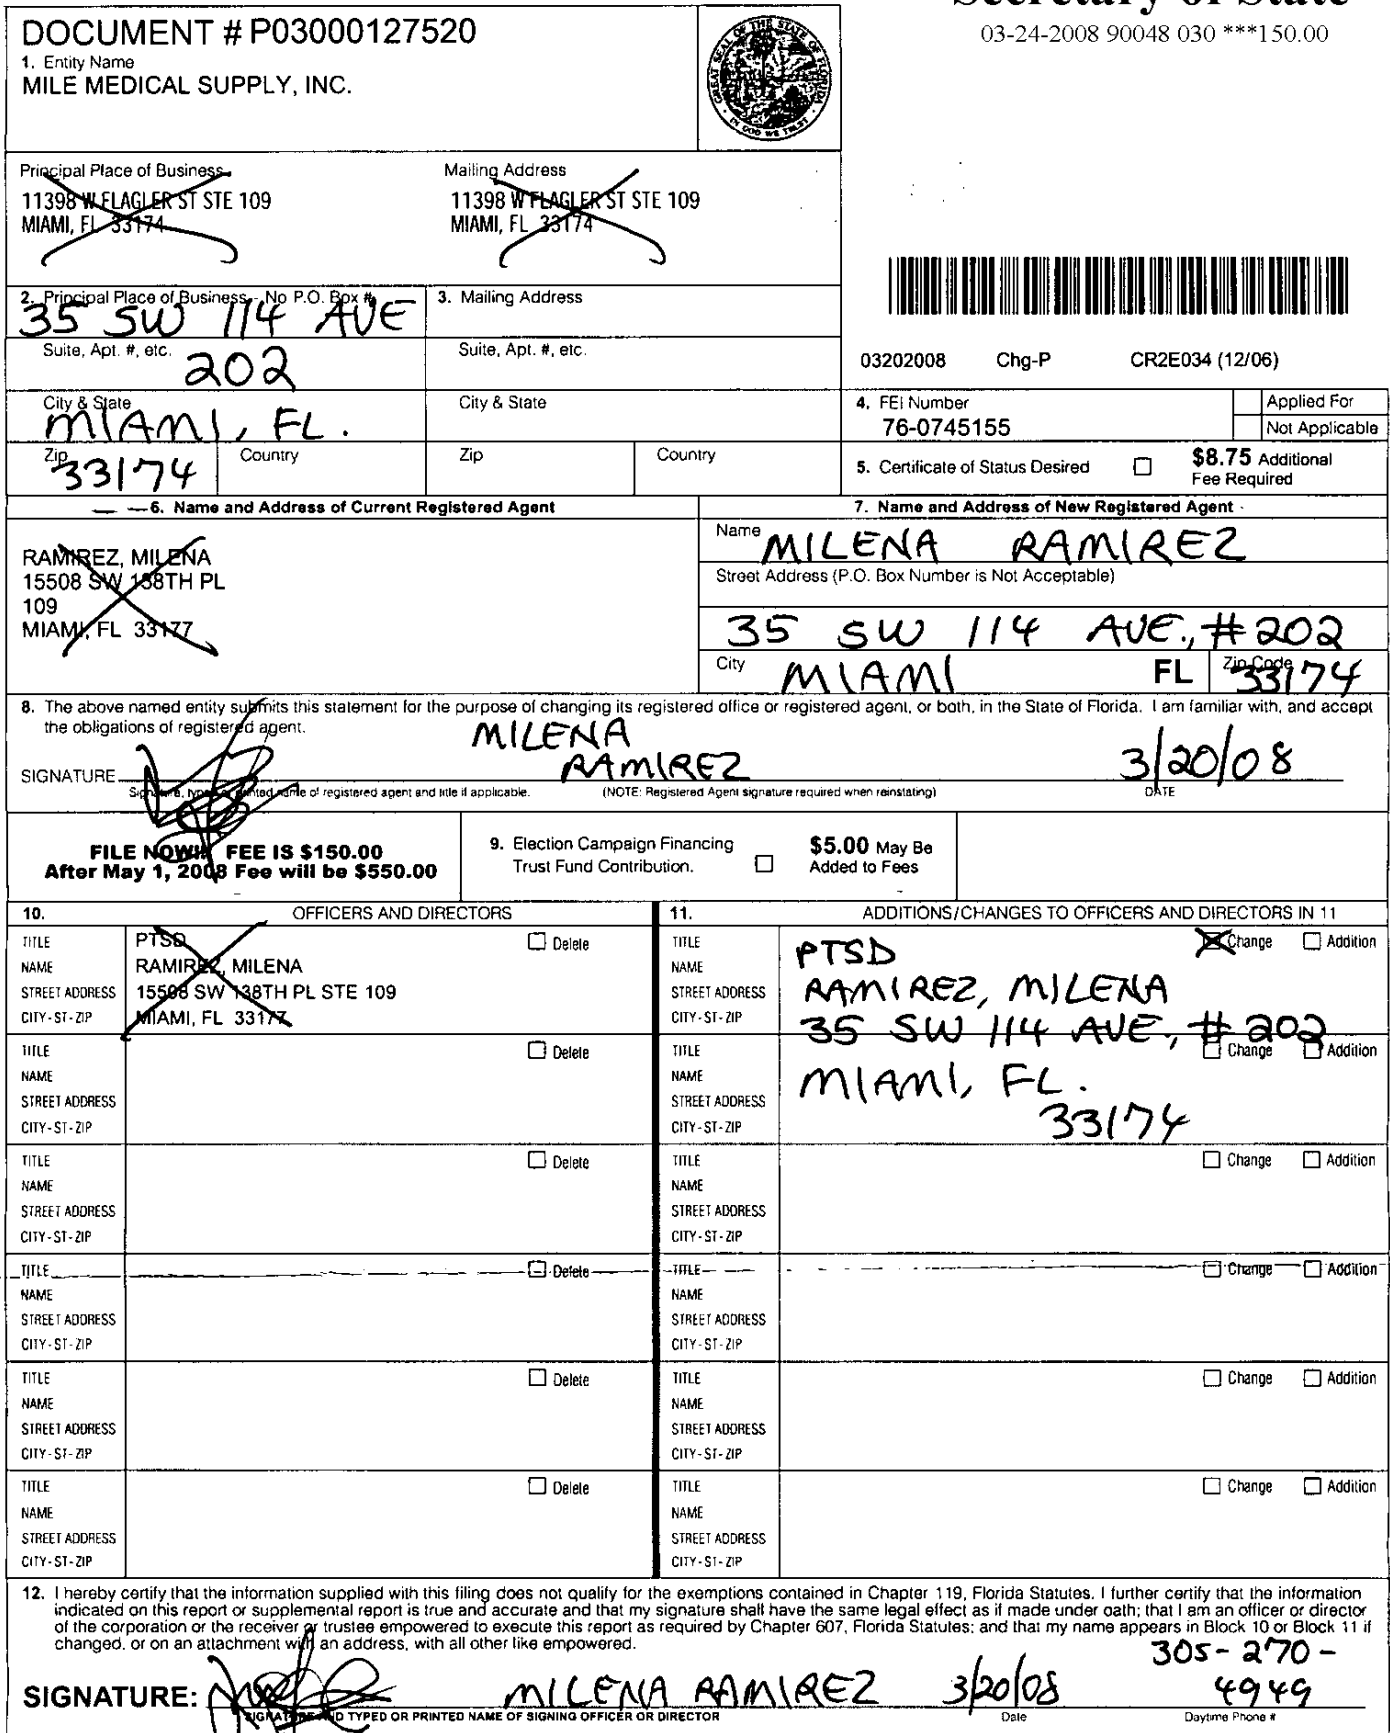 Secretary of State
03-24-2008 90048 030 ***150.00
DOCUMENT # P03000127520
1. Entity Name
MILE MEDICAL SUPPLY, INC.
GREAT SEAL OF THE STATE OF FLORIDA
IN GOD WE TRUST
Principal Place of Business
11398 W FLAGLER ST STE 109
MIAMI, FL 33174
Mailing Address
11398 W FLAGLER ST STE 109
MIAMI, FL 33174
2. Principal Place of Business - No P.O. Box #
35 SW 114 AVE
3. Mailing Address
Suite, Apt. #, etc.
202
Suite, Apt. #, etc.
03202008 Chg-P CR2E034 (12/06)
City & State
MIAMI, FL.
City & State
4. FEI Number
76-0745155
Applied For
Not Applicable
Zip
33174
Country
Zip
Country
5. Certificate of Status Desired
$8.75 Additional
Fee Required
6. Name and Address of Current Registered Agent
7. Name and Address of New Registered Agent
RAMIREZ, MILENA
15508 SW 138TH PL
109
MIAMI, FL 33177
Name
MILENA RAMIREZ
Street Address (P.O. Box Number is Not Acceptable)
35 SW 114 AVE., #202
City
MIAMI
FL
Zip Code
33174
8. The above named entity submits this statement for the purpose of changing its registered office or registered agent, or both, in the State of Florida. I am familiar with, and accept
the obligations of registered agent.
MILENA
RAMIREZ
3/20/08
SIGNATURE
Signature, typed or printed name of registered agent and title if applicable. (NOTE: Registered Agent signature required when reinstating) DATE
FILE NOW!!! FEE IS $150.00
After May 1, 2008 Fee will be $550.00
9. Election Campaign Financing
Trust Fund Contribution.
$5.00 May Be
Added to Fees
10. OFFICERS AND DIRECTORS
11. ADDITIONS/CHANGES TO OFFICERS AND DIRECTORS IN 11
TITLE PTSD Delete
NAME RAMIREZ, MILENA
STREET ADDRESS 15508 SW 138TH PL STE 109
CITY-ST-ZIP MIAMI, FL 33177
TITLE PTSD Change Addition
NAME
STREET ADDRESS RAMIREZ, MILENA
CITY-ST-ZIP 35 SW 114 AVE, # 202
TITLE Delete
NAME
STREET ADDRESS
CITY-ST-ZIP
TITLE Change Addition
NAME MIAMI, FL.
STREET ADDRESS 33174
CITY-ST-ZIP
TITLE Delete
NAME
STREET ADDRESS
CITY-ST-ZIP
TITLE Change Addition
NAME
STREET ADDRESS
CITY-ST-ZIP
TITLE Delete
NAME
STREET ADDRESS
CITY-ST-ZIP
TITLE Change Addition
NAME
STREET ADDRESS
CITY-ST-ZIP
TITLE Delete
NAME
STREET ADDRESS
CITY-ST-ZIP
TITLE Change Addition
NAME
STREET ADDRESS
CITY-ST-ZIP
TITLE Delete
NAME
STREET ADDRESS
CITY-ST-ZIP
TITLE Change Addition
NAME
STREET ADDRESS
CITY-ST-ZIP
12. I hereby certify that the information supplied with this filing does not qualify for the exemptions contained in Chapter 119, Florida Statutes. I further certify that the information
indicated on this report or supplemental report is true and accurate and that my signature shall have the same legal effect as if made under oath; that I am an officer or director
of the corporation or the receiver or trustee empowered to execute this report as required by Chapter 607, Florida Statutes; and that my name appears in Block 10 or Block 11 if
changed, or on an attachment with an address, with all other like empowered.
305-270-
SIGNATURE: MILENA RAMIREZ 3/20/08 4949
SIGNATURE AND TYPED OR PRINTED NAME OF SIGNING OFFICER OR DIRECTOR Date Daytime Phone #